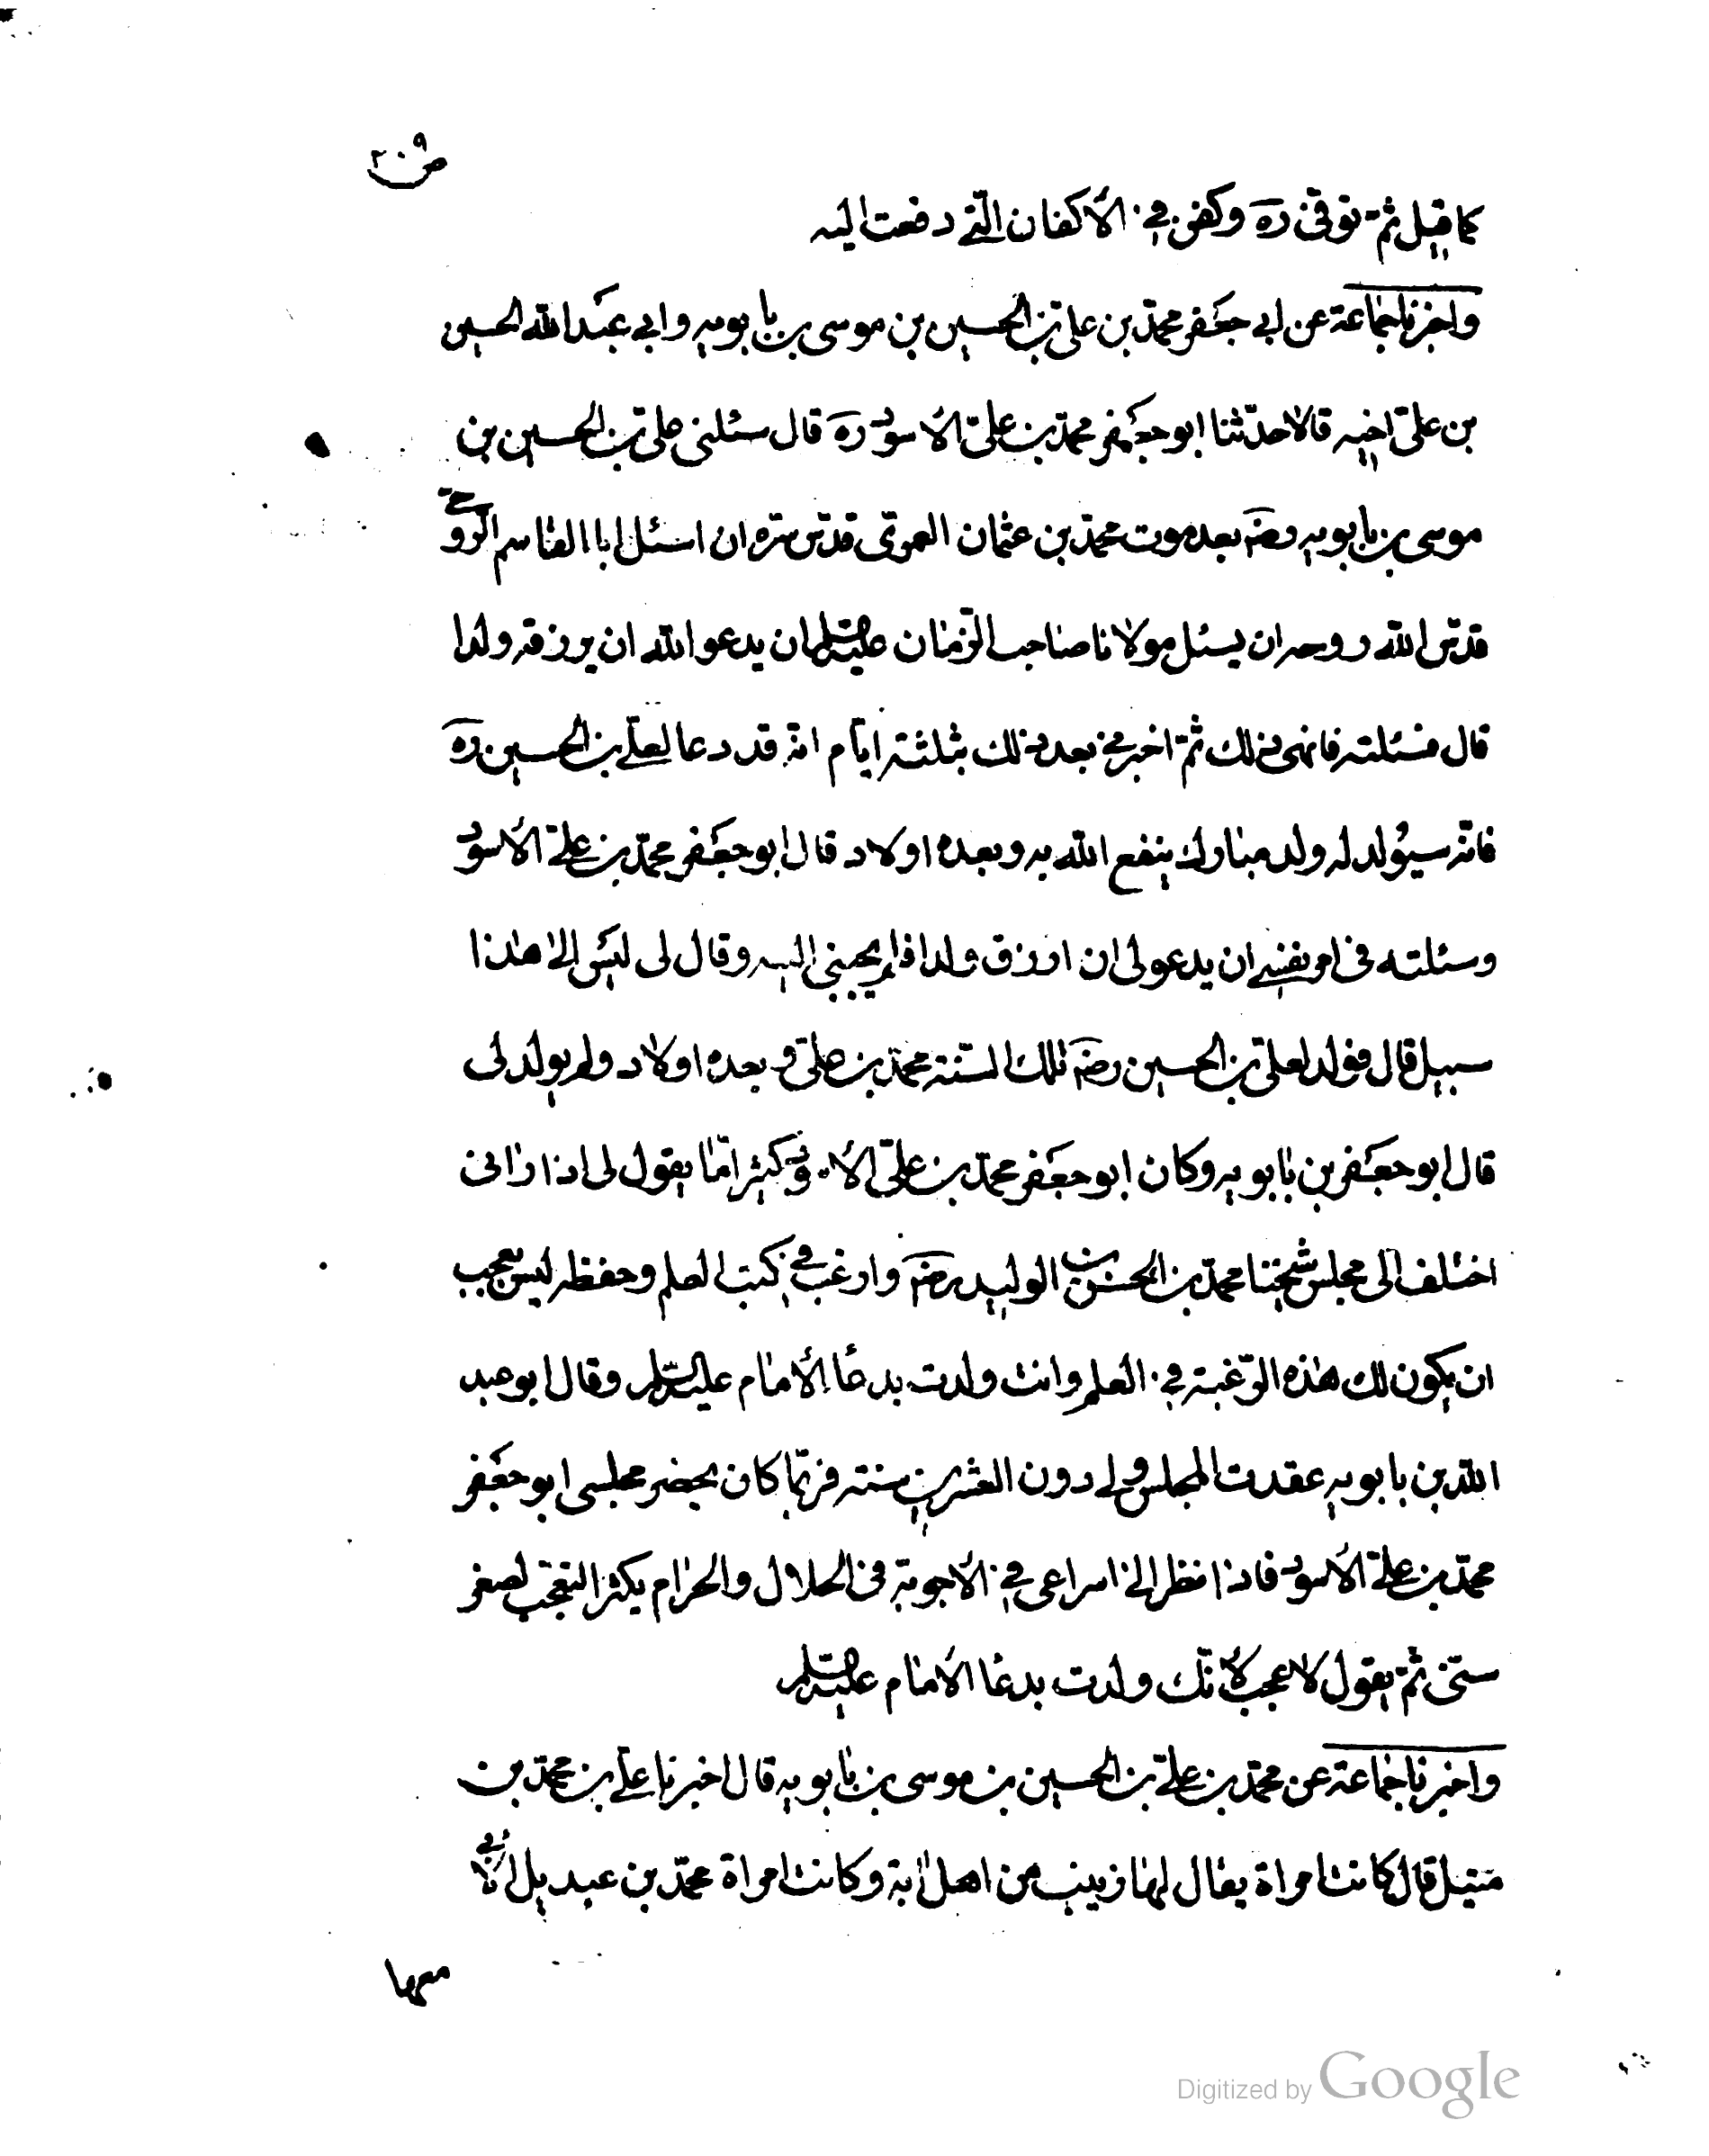 ص ٢٠٩
كما قيل ثمّ توفّى ره وكفن في الأكفان الّتي دفعت اليه
واخبرنا جماعة عن ابي جعفر محمّد بن علىّ بن الحسين بن موسى بن بابويه وابي عبد الله الحسين
بن علىّ اخيه قالا حدّثنا ابو جعفر محمّد بن علىّ الأسود ره قال سئلنى علىّ بن الحسين بن
موسى بن بابويه رضه بعد موت محمّد بن عثمان العمرىّ قدّس سرّه ان اسئل ابا القاسم الرّوحى
قدّس الله روحه ان يسئل مولانا صاحب الزّمان عليه السّلم ان يدعو الله ان يرزقه ولدا
قال فسئلته فانهى ذلك ثمّ اخبرني بعد ذلك بثلثة ايّام انّه قد دعا لعلىّ بن الحسين ره
فانّه سيولد له ولد مبارك ينفع الله به وبعده اولاد قال ابو جعفر محمّد بن علىّ الأسود
وسئلته فى امر نفسي ان يدعو لى ان ارزق ولدا فلم يجبنى اليه وقال لى ليس الى هذا
سبيل قال فولد لعلىّ بن الحسين رضه تلك السّنة محمّد بن علىّ وبعده اولاد ولم يولد لى
قال ابو جعفر بن بابويه وكان ابو جعفر محمّد بن علىّ الأسود كثيرا مّا يقول لى اذا رانى
اختلف الى مجلس شيخنا محمّد بن الحسن بن الوليد رضه وارغب في كتب العلم وحفظه ليس بعجب
ان يكون لك هذه الرّغبة في العلم وانت ولدت بدعا الأمام عليه السّلم وقال ابو عبد
الله بن بابويه عقدت المجلس ولى دون العشرين سنة فربّما كان يحضر مجلسى ابو جعفر
محمّد بن علىّ الأسود فاذا نظر الى اسراعى في الأجوبة فى الحلال والحرام يكثر التّعجّب لصغر
سنّى ثمّ يقول لا عجب لأنّك ولدت بدعا الأمام عليه السّلم
واخبرنا جماعة عن محمّد بن علىّ بن الحسين بن موسى بن بابويه قال اخبرنا علىّ بن محمّد بن
متيل قال كانت امراة يقال لها زينب من اهل آبة وكانت امراة محمّد بن عبديل الآبى
معها
Digitized by Google